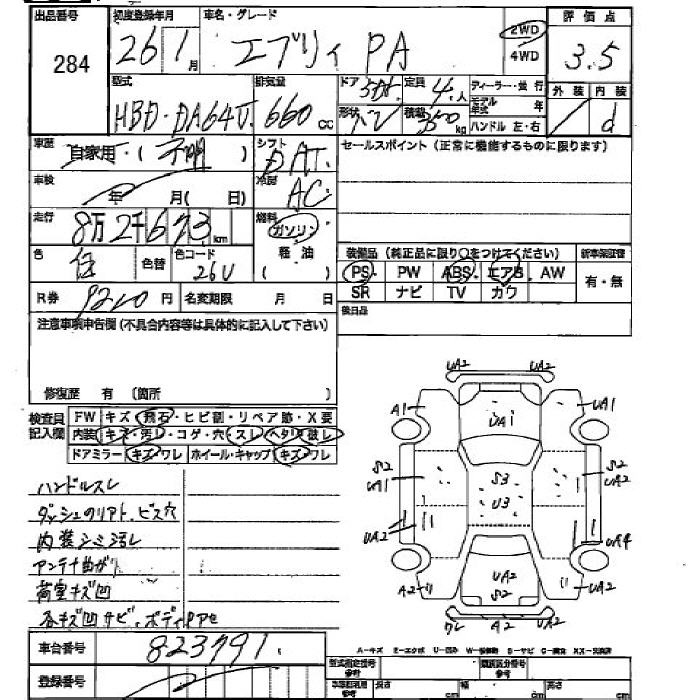 出品番号 初度登録年月 車名・グレード 評価点
284 26 1月 エブリィ PA 2WD 3.5
4WD
型式 排気量 ドア 定員 4人 ディーラー・並行 外装 内装
HBD・DA64V 660cc 形状 バン 積載 350kg モデル年式 年 d
ハンドル 左・右
車歴 自家用・(不明) シフト セールスポイント (正常に機能するものに限ります)
車検 年 月( 日) 冷房 AC
走行 8万2千673km 燃料 ガソリン
軽油
( )
色 色替 色コード 26U 装備品 (純正品に限り○をつけてください) 新車保証書
PS PW ABS エアB AW 有・無
SR ナビ TV カワ
R券 9210円 名変期限 月 日 後日品
注意事項申告欄(不具合内容等は具体的に記入して下さい)
修復歴 有 〔箇所 〕
検査員記入欄 FW キズ・飛石・ヒビ割・リペア跡・X要
内装 キズ・汚レ・コゲ・穴・スレ・ヘタリ・破レ
ドアミラー キズ・ワレ ホイール・キャップ キズ・ワレ
ハンドルスレ
ダッシュのリアト、ビス穴
内装シミ汚レ
アンテナ曲がり
荷室キズ凹
各キズ凹サビ、ボディ
UA2 UA2
A1 UA1 UA1
S2 UA1 S3 S2 UA2
U3
UA2 UA4
A2 UA2 S2 UA2
ワレ A2 UA2
A-キズ E-エクボ U-凹み S-サビ
車台番号 823791
登録番号 型式指定番号 類別区分番号
参考 長さ cm 幅 cm 高さ cm